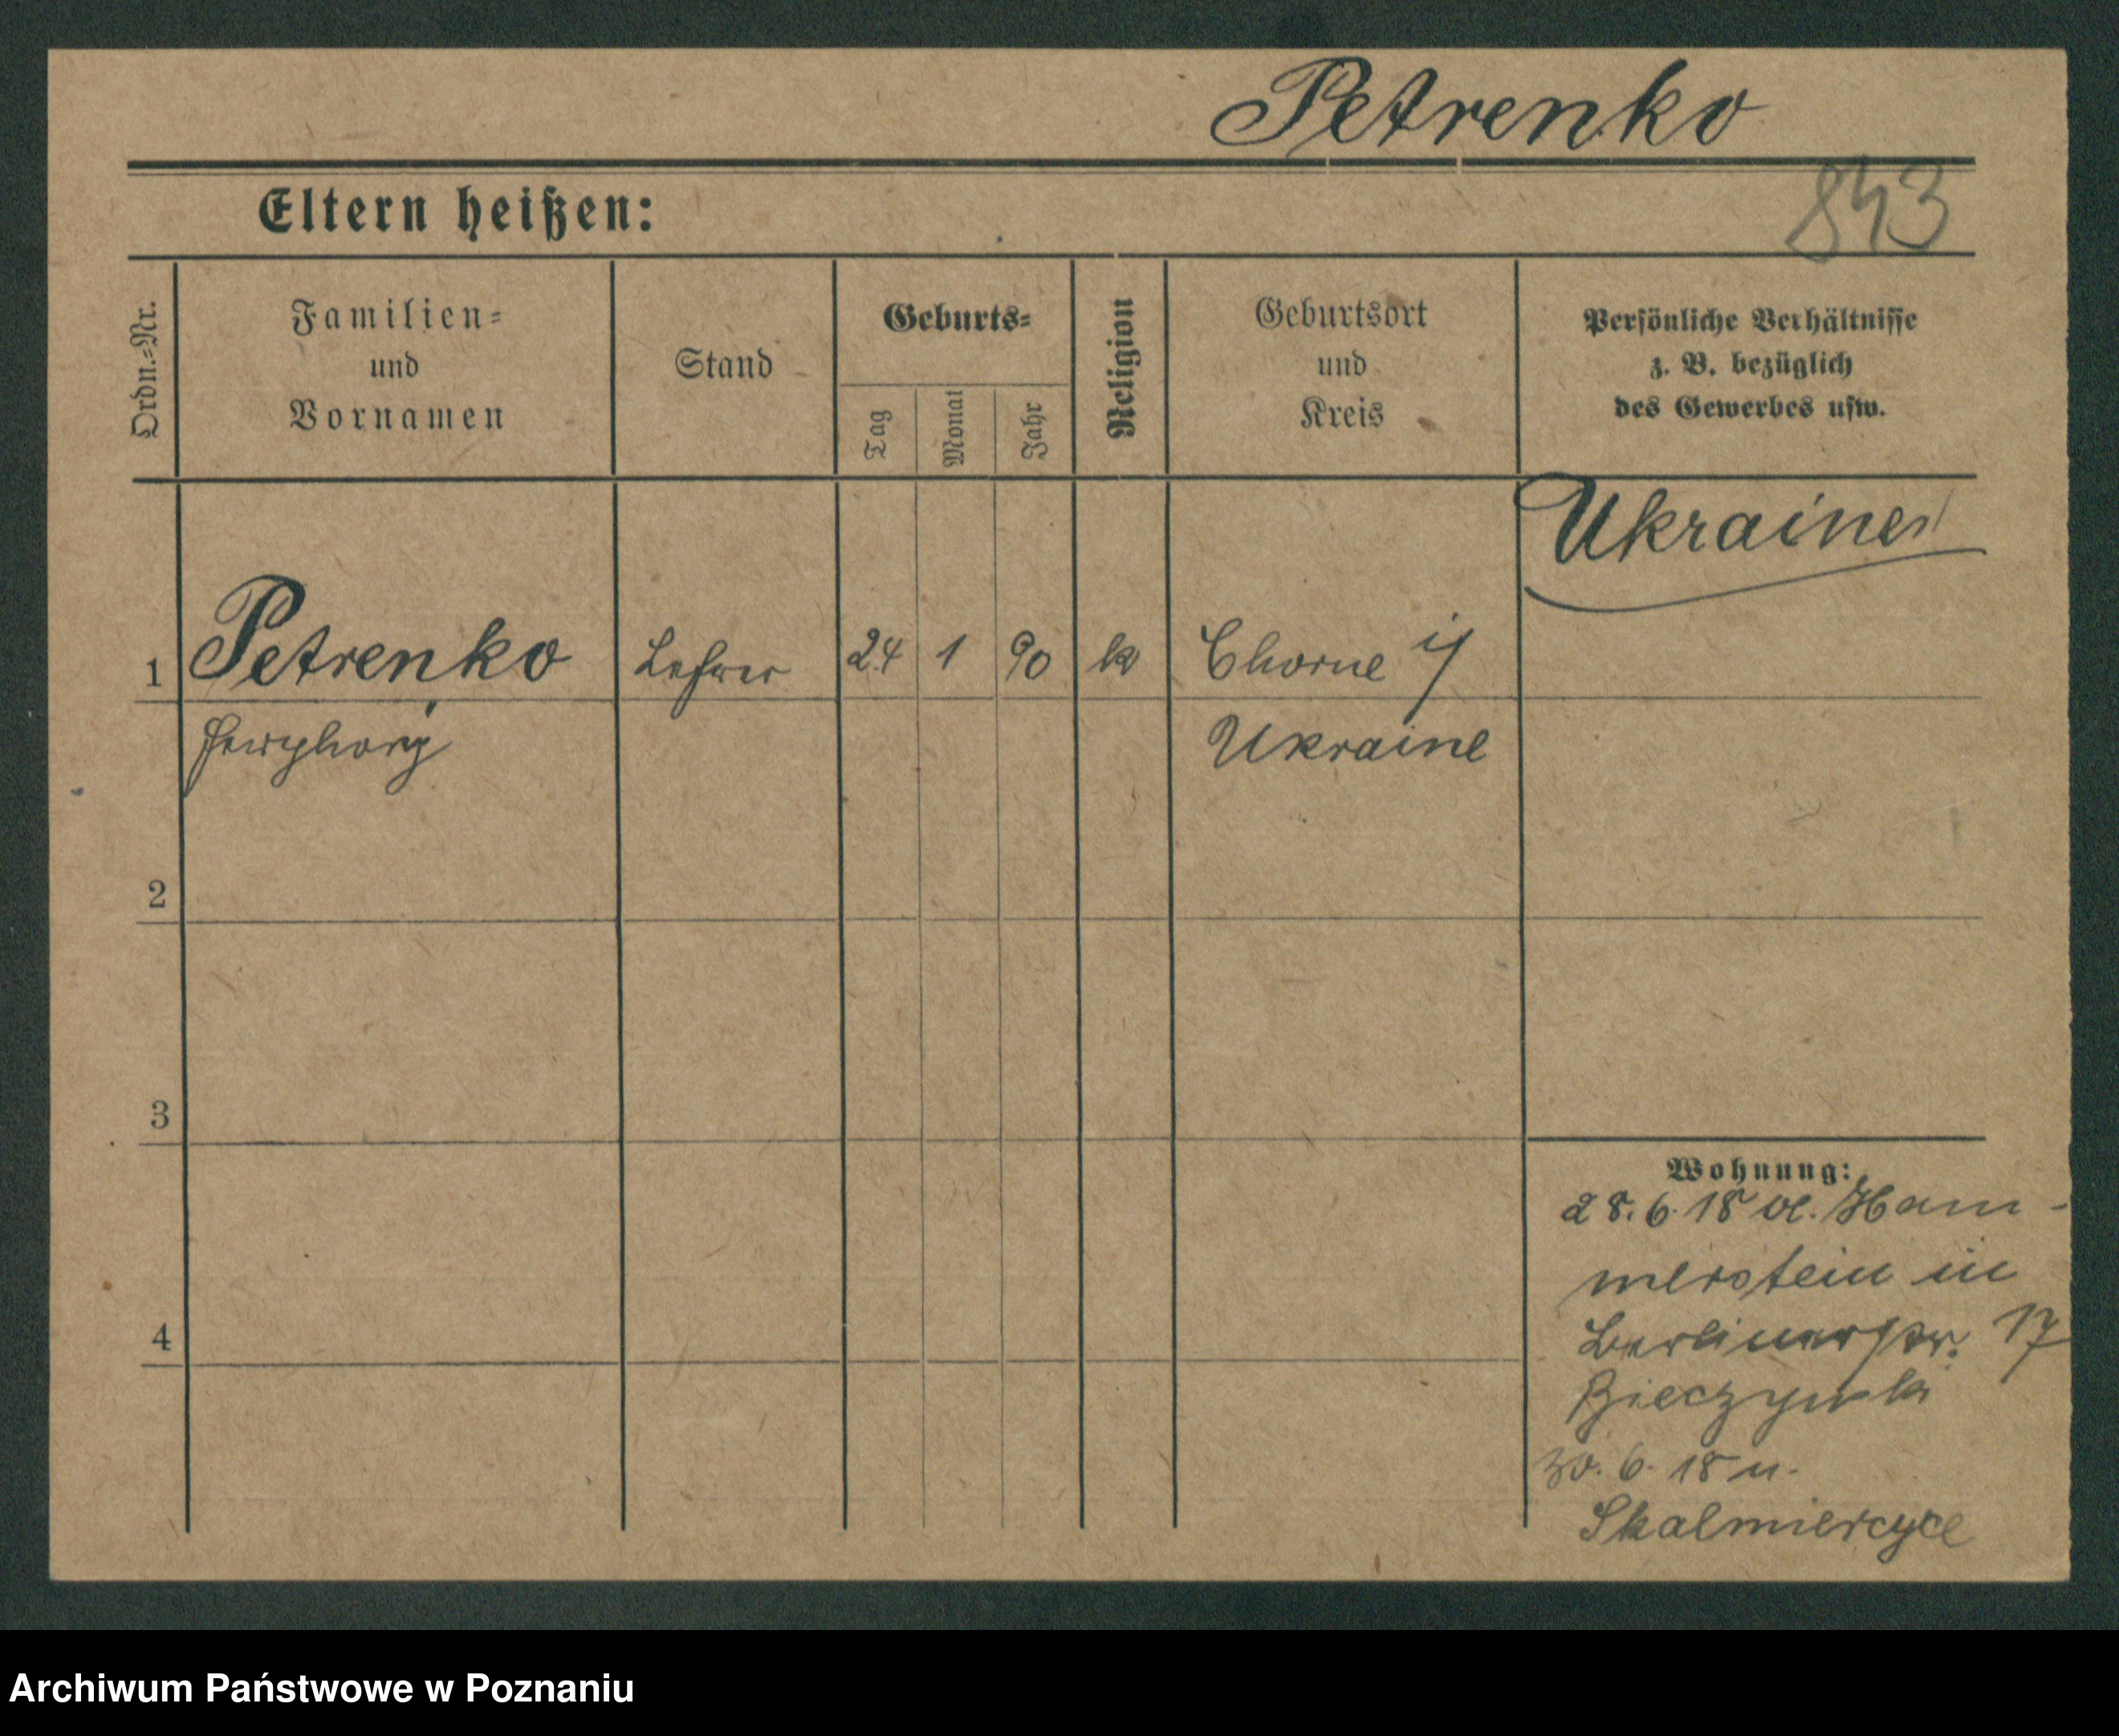 Petrenko
843
Eltern heißen:
Ordn.-Nr.
Familien-
und
Vornamen
Stand
Geburts-
Tag
Monat
Jahr
Religion
Geburtsort
und
Kreis
Persönliche Verhältnisse
z. B. bezüglich
des Gewerbes usw.
Ukrainer
1 Petrenko Lehrer 24 1 90 k Chorne i/
Ukraine
2
3
4
Wohnung:
28.6.18 v. Ham-
merstein in
Berlinerstr. 17
30.6.18 n.
Skalmiercyce
Archiwum Państwowe w Poznaniu